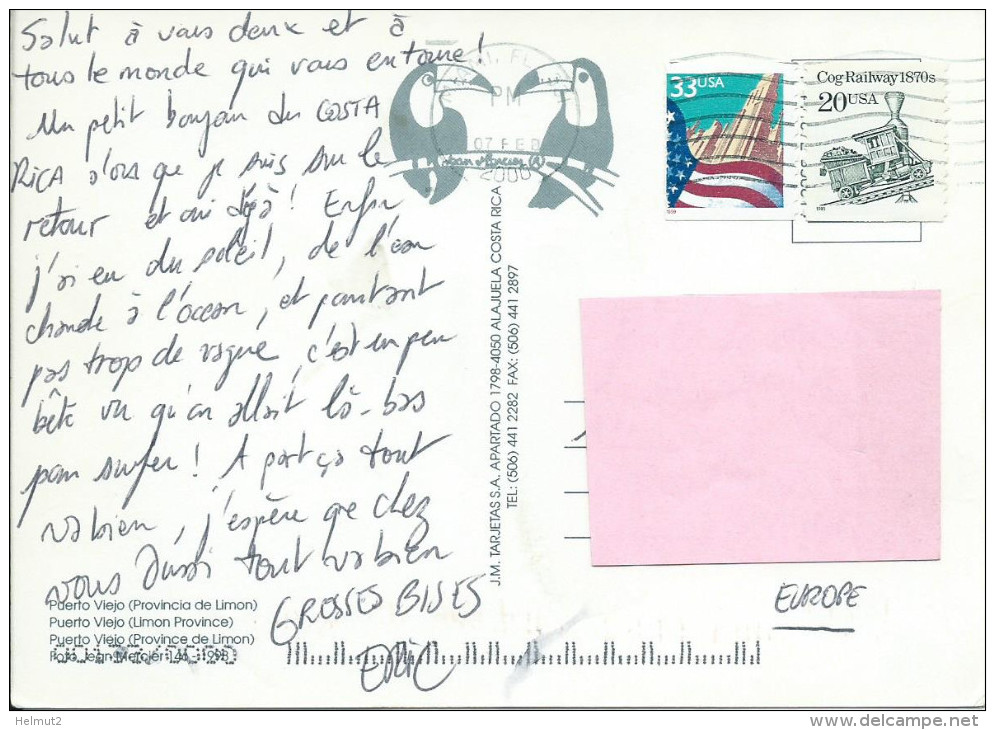 Salut à vous deux et à
tous le monde qui vous entoure !
Un petit bonjour du COSTA
RICA alors que je suis sur le
retour et oui déjà ! Enfin
j'ai eu du soleil, de l'eau
chaude à l'océan, et pourtant
pas trop de vague, c'est un peu
bête vu qu'on allait là-bas
pour surfer ! A part ça tout
va bien, j'espère que chez
vous aussi tout va bien
GROSSES BISES
ERIC
Puerto Viejo (Provincia de Limon)
Puerto Viejo (Limon Province)
Puerto Viejo (Province de Limon)
Foto Jean Mercier 146 - 1998
J.M. TARJETAS S.A. APARTADO 1798-4050 ALAJUELA COSTA RICA
TEL: (506) 441 2282 FAX: (506) 441 2897
FL
PM
07 FEB
2000
Jean Mercier (R)
33USA
1999
Cog Railway 1870s
20 USA
EUROPE
Helmut2
delcampe.net